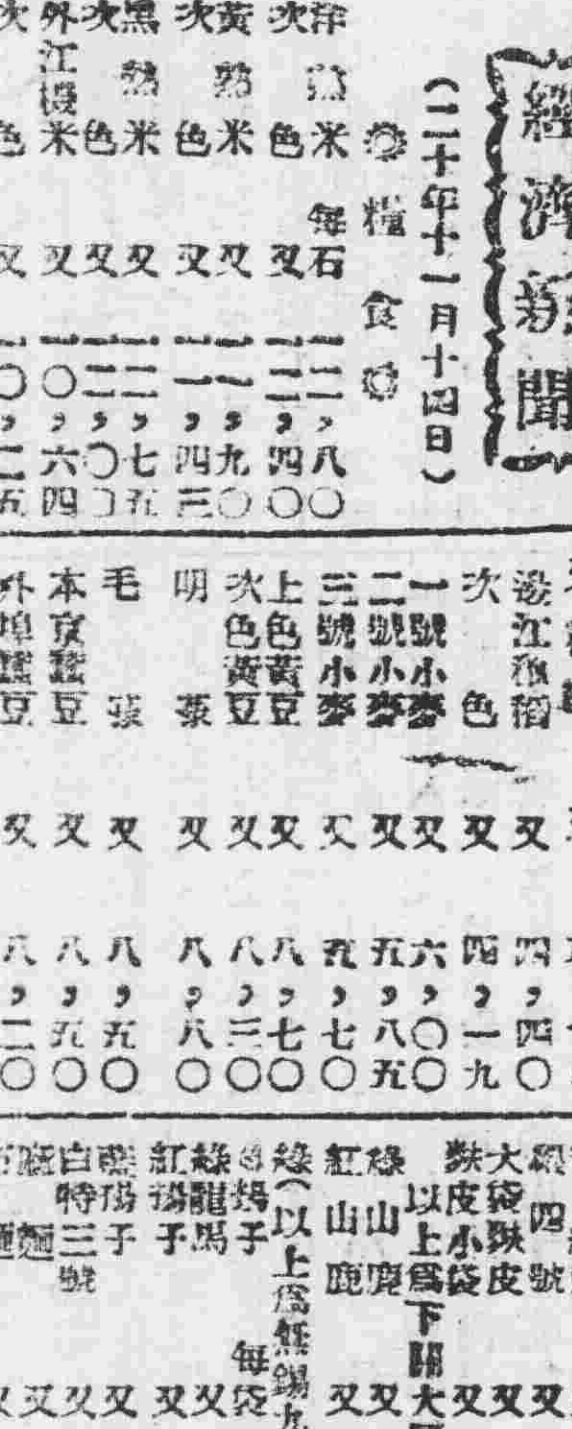 經濟新聞
（二十年十一月十四日）
糧食
洋熟米 每石 一二，八〇
次色 又 一二，四〇
黃熟米 又 一一，九〇
次色 又 一一，四三
黑熟米 又 一二，七五
次色 又 一二，〇
外江機米 又 一〇，六四
次色 又 一〇，二五
江秈稻 又 四，四〇
次色 又 四，一九
一號小麥 又 六，〇〇
二號小麥 又 五，八五
三號小麥 又 五，七〇
上色黃豆 又 八，七〇
次色黃豆 又 八，三〇
明 又 八，八〇
毛 又 八，五〇
本京蠶豆 又 八，五〇
外埠蠶豆 又 八，二〇
四號 又
大袋麩皮 又
麩皮小袋 又
以上爲下關大
綠山鹿 又
紅山鹿 又
綠（以上爲無錫九
子 每袋
綠龍馬 又
紅子 又
子 又
白特三號 又
麵 又
麵 又